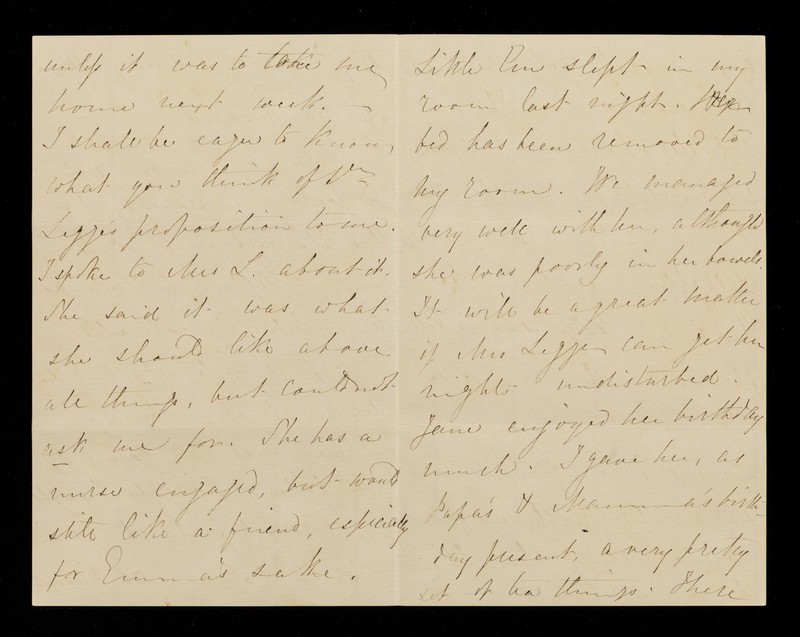 unless it was to take me
home next week. —
I shall be eager to know,
what you think of Dr
Legge's proposition to me.
I spoke to Mrs L. about it.
She said it was what
she should like above
all things, but could not
ask me for. She has a
nurse engaged, but would
still like a friend, especially
for Emma's sake.
Little Em slept in my
room last night. Her
bed has been removed to
my room. We managed
very well with her, although
she was poorly in her bowels.
It will be a great matter
if Mrs Legge can get her
nights undisturbed.
Jane enjoyed her birthday
much. I gave her, as
Papa's & Mamma's birth-
day present, a very pretty
set of tea things. There